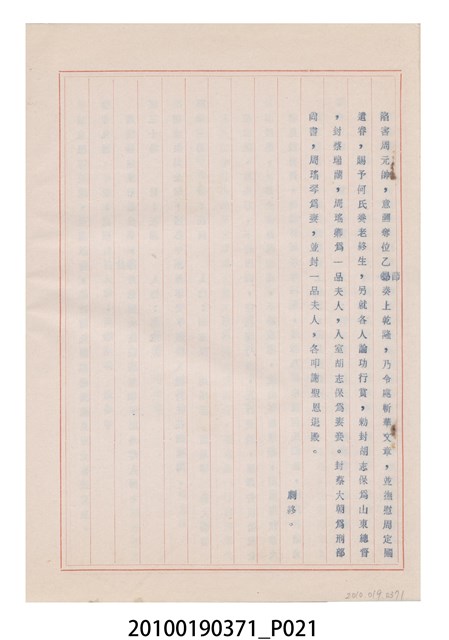 陷害周元帥,意圖奪位乙節奏上乾隆,乃令處斬華文章,並撫慰周定國
遺眷,賜予何氏養老終生,另就各人論功行賞,勅封胡志保為山東總督
,封蔡瑞蘭,周瑤卿為一品夫人,入室胡志保為妻妾。封蔡大朝為刑部
尚書,周瑤琴為妻,並封一品夫人,各叩謝聖恩退殿。
劇終。
2010.019.0371
20100190371_P021